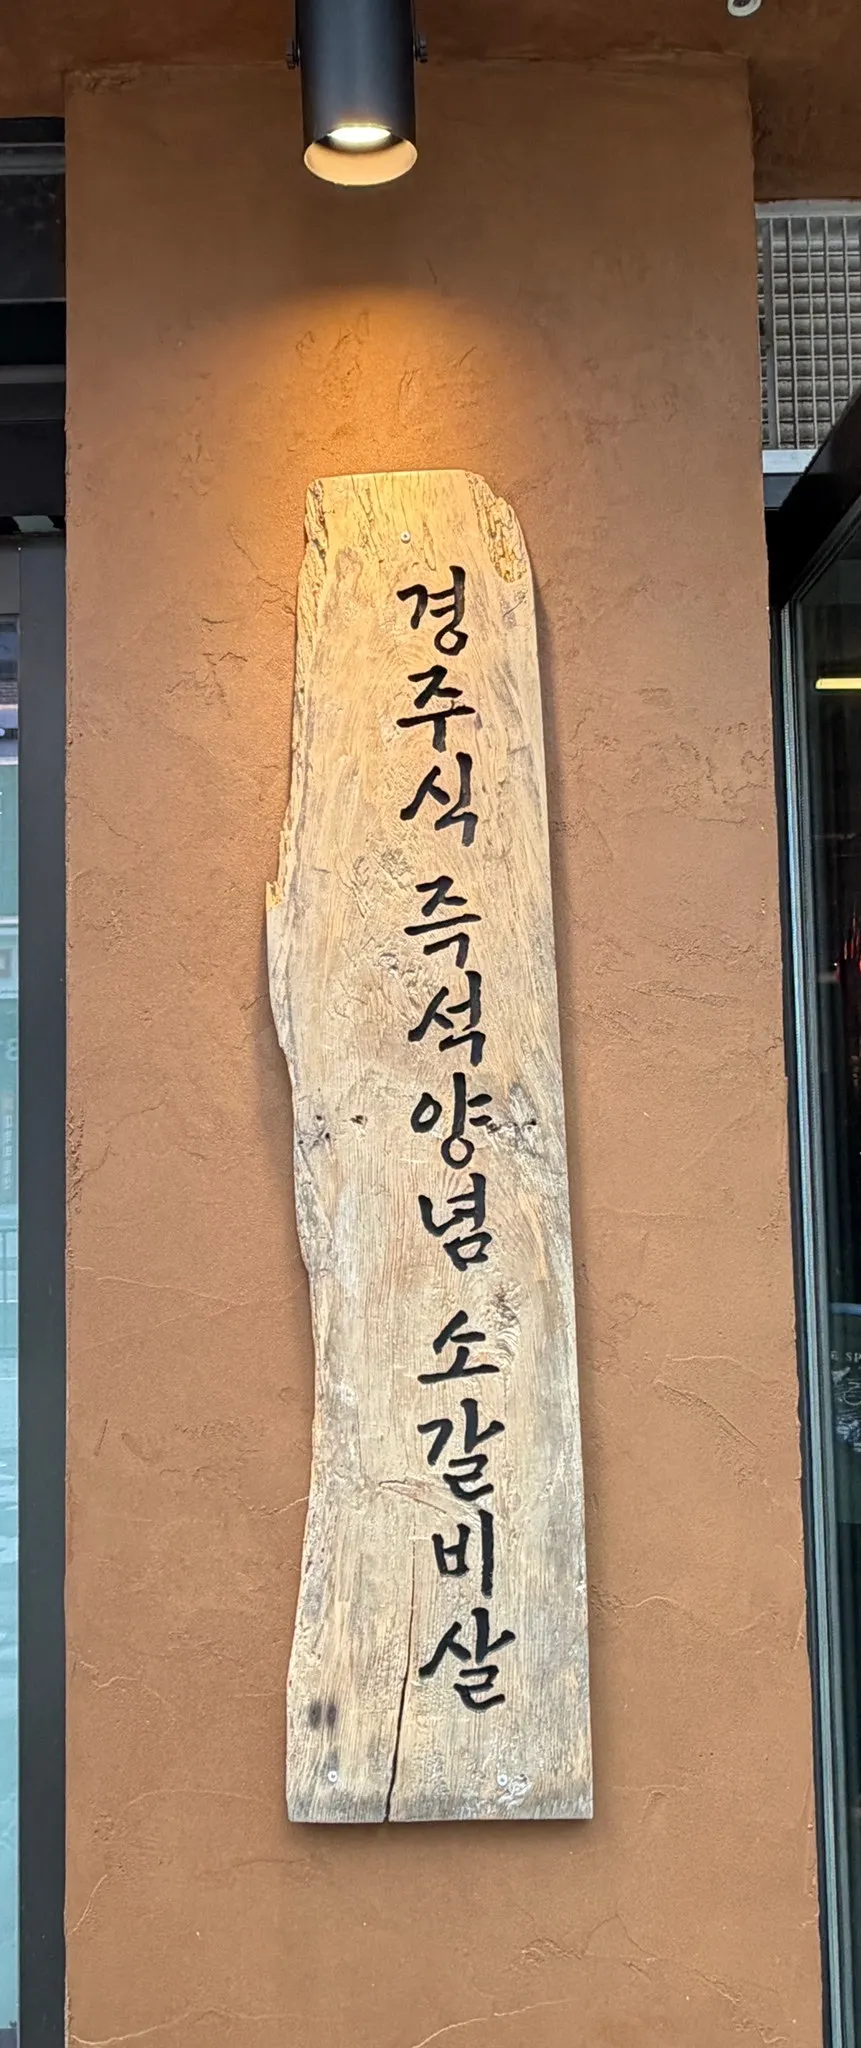 경주식 즉석양념 소갈비살